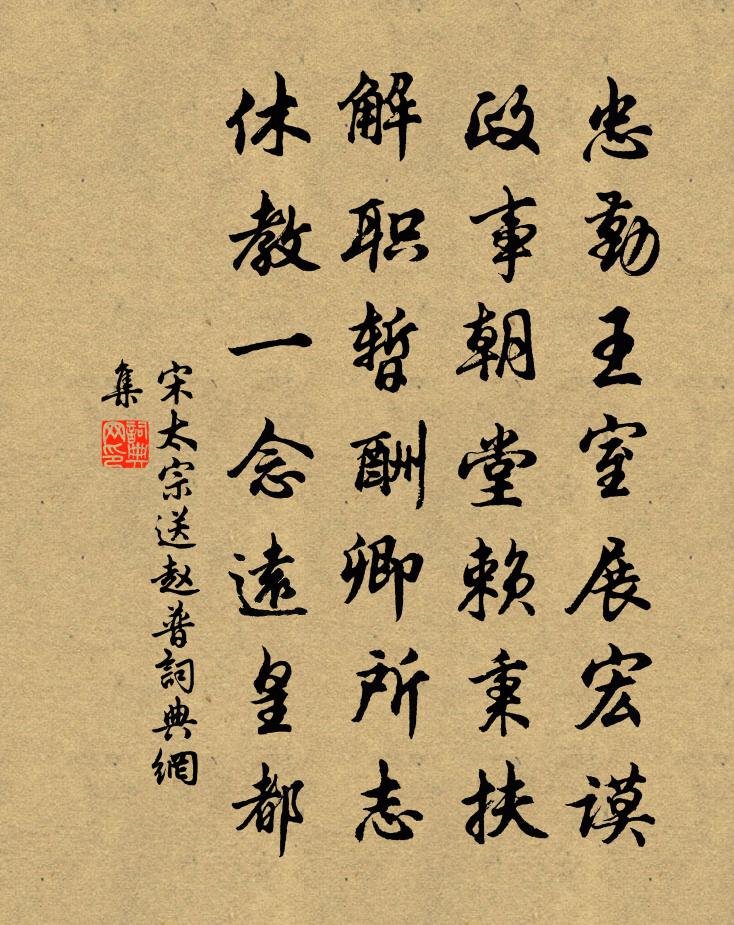 忠勤王室展宏谟
政事朝堂赖秉扶
解职暂酬卿所志
休教一念遠皇都
宋太宗送赵普詞典網
集
詞典
网印